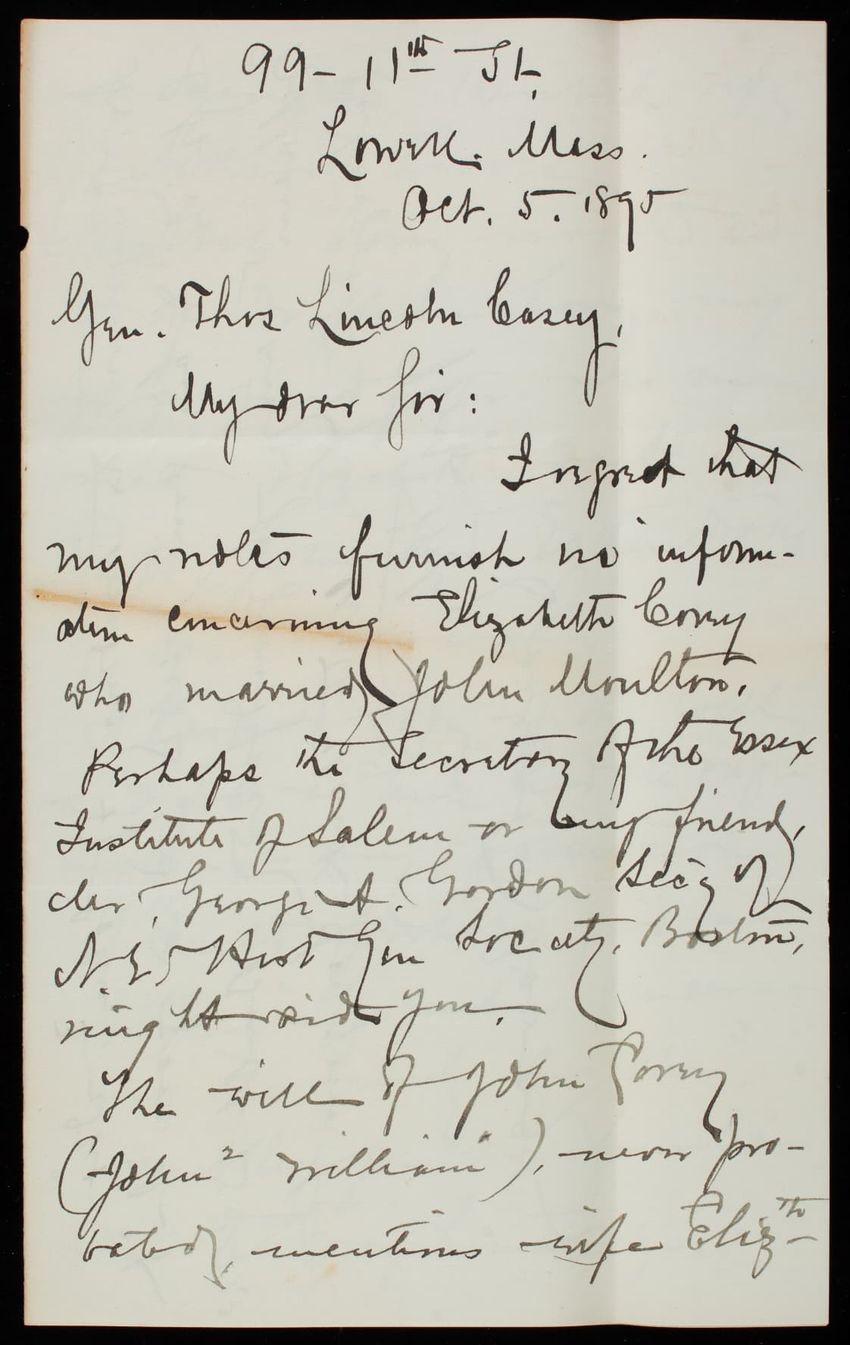 99 - 11th St,
Lowell. Mass.
Oct. 5. 1895
Gen. Thos Lincoln Casey,
My dear Sir:
I regret that
my notes furnish no inform-
ation concerning Elizabeth Corey
who married John Moulton.
Perhaps the Secretary of the Essex
Institute of Salem or my friend,
George A. Gordon Sec'y of
N. E. Hist Gen Society, Boston,
might aid you.
The will of John Corey
(John² William¹), never pro-
bated, mentions wife Elizth